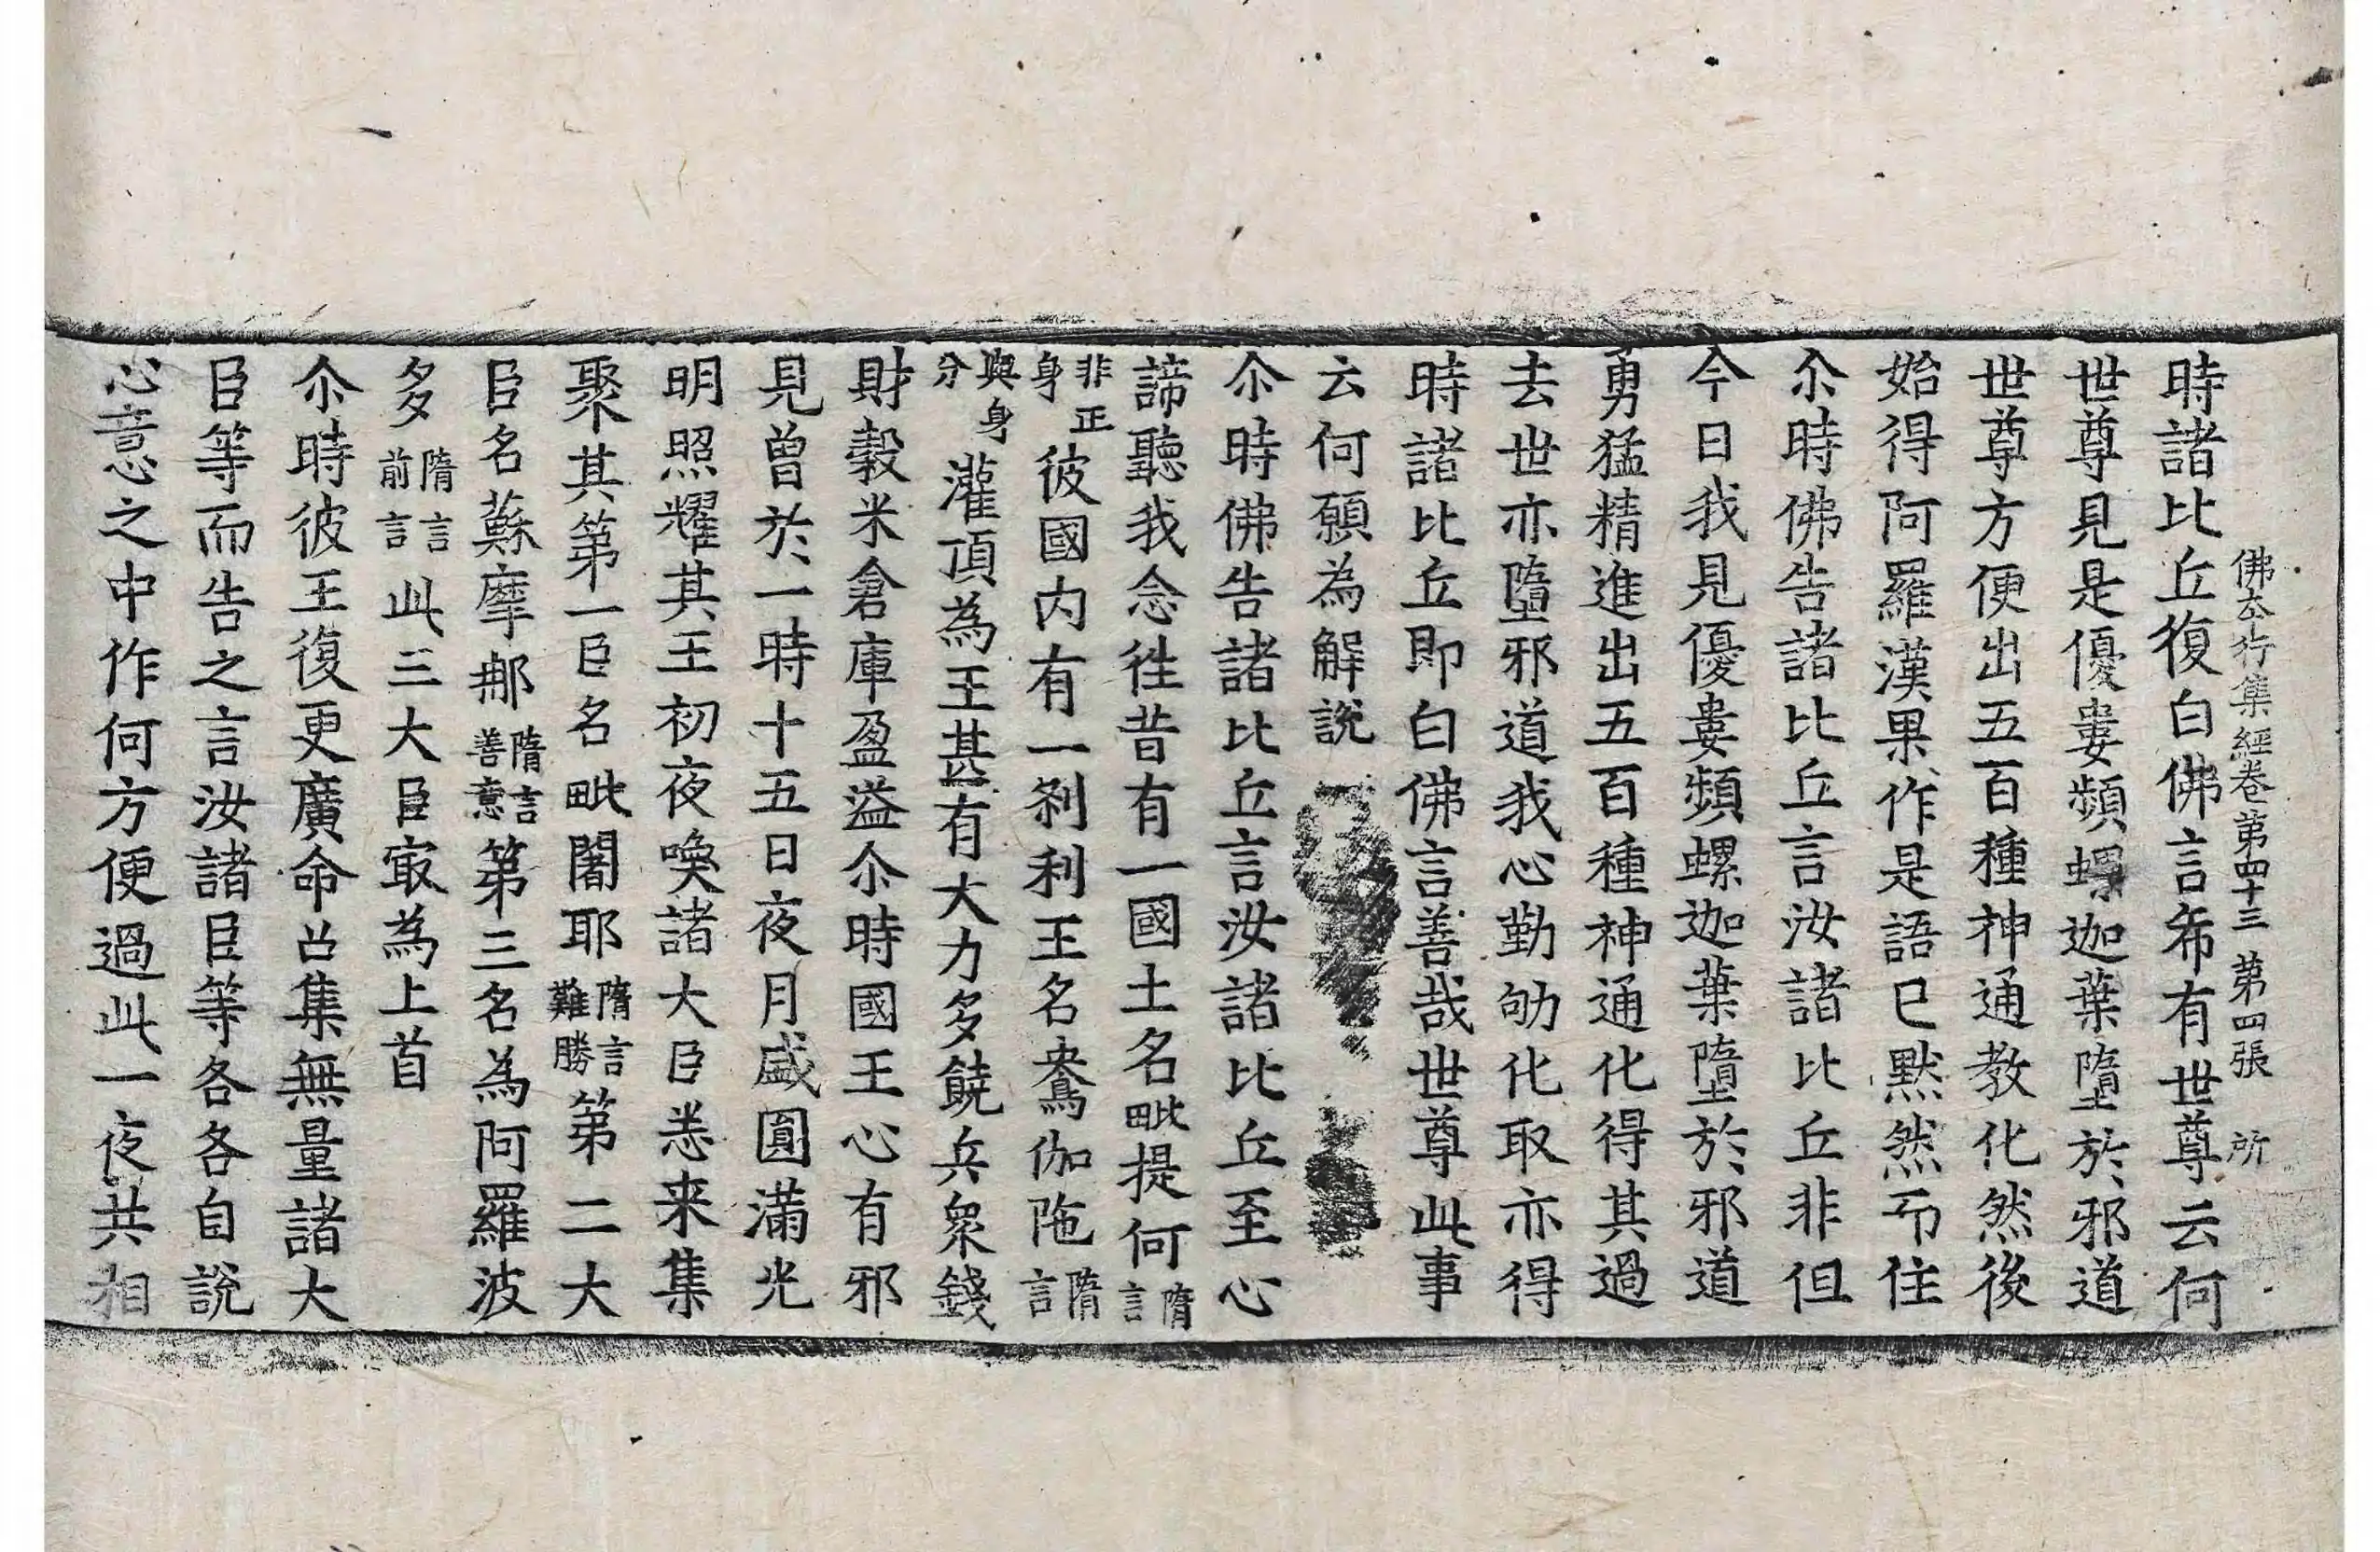 佛夲行集經卷第四十三 第四張 所
時諸比丘復白佛言希有世尊云何
世尊見是優婁頻螺迦葉墮於邪道
世尊方便出五百種神通教化然後
始得阿羅漢果作是語已默然而住
尒時佛告諸比丘言汝諸比丘非但
今日我見優婁頻螺迦葉墮於邪道
勇猛精進出五百種神通化得其過
去世亦墮邪道我心勤劬化取亦得
時諸比丘即白佛言善哉世尊此事
云何願為解說
尒時佛告諸比丘言汝諸比丘至心
諦聽我念徃昔有一國土名毗提何隋言
非正身彼國内有一剎利王名鴦伽陁隋言
與身分灌頂為王甚有大力多饒兵衆錢
財穀米倉庫盈溢尒時國王心有邪
見曾於一時十五日夜月盛圓滿光
明照耀其王初夜喚諸大臣悉来集
聚其第一臣名毗闍耶隋言難勝第二大
臣名蘇摩那隋言善意第三名為阿羅波
多隋言前言此三大臣㝡為上首
尒時彼王復更廣命召集無量諸大
臣等而告之言汝諸臣等各各自說
心意之中作何方便過此一夜共相